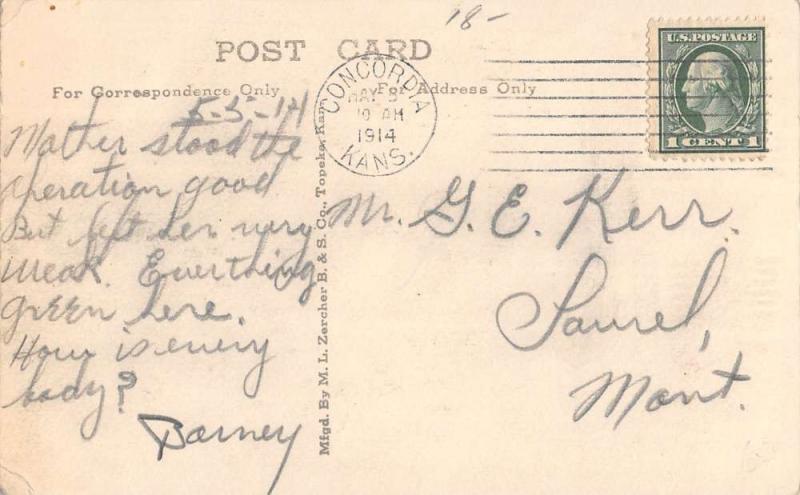 18-
POST CARD
For Correspondence Only
For Address Only
CONCORDIA
MAY 5
10 AM
1914
KANS.
U.S. POSTAGE
1 CENT 1
5-5-14
Mother stood the
operation good
But left her very
weak. Everything
green here.
How is every
body?
Barney
Mfgd. By M. L. Zercher B. & S. Co., Topeka, Kan.
Mr. G. E. Kerr.
Laurel,
Mont.